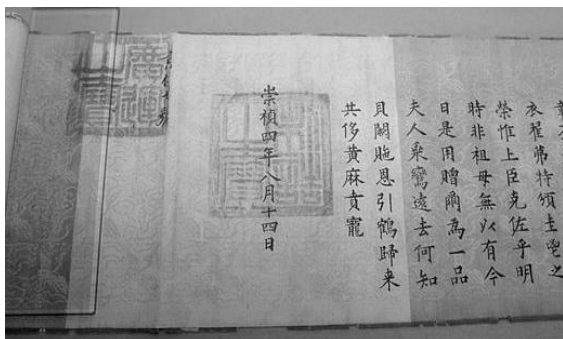 衣翟茀特頒圭鬯之
榮惟上臣克佐乎明
時非祖母無以有今
日是用贈爾為一品
夫人乘鸞遠去何知
貝闕貤恩引鶴歸来
共侈黄麻賁寵
崇禎四年八月十四日
制誥之寶
廣運之寶